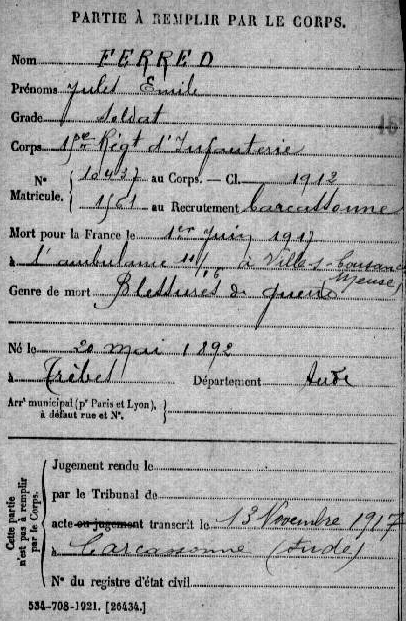 PARTIE À REMPLIR PAR LE CORPS.
Nom FERRED
Prénoms Jules Emile
Grade Soldat
Corps Régt d'Infanterie
N° Matricule. { 10437 au Corps. — Cl. 1912
1501 au Recrutement Carcassonne
Mort pour la France le 1er Juin 1917
à l'ambulance 11/16 à Ville-s-Cousances
Meuse)
Genre de mort Blessures de guerre
Né le 20 mai 1892
à Trèbes Département Aude
Arrt municipal (pr Paris et Lyon), à défaut rue et N°. }
Cette partie n'est pas à remplir par le Corps.
Jugement rendu le
par le Tribunal de
acte ou jugement transcrit le 13 Novembre 1917
à Carcassonne (Aude)
N° du registre d'état civil
534-708-1921. [26434.]